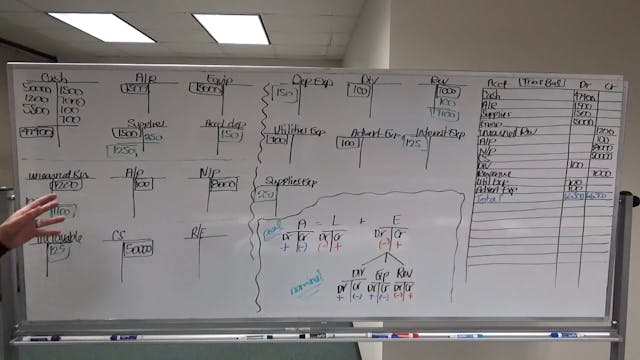 Cash
50000 | 1500
1200 | 7000
5300 | 100
100
47900
A/R
1500
Equip
Supplies
1500 | 250
1250
Acc dep
150
Unearned Rev
1200
100
A/P
100
N/P
125
CS
50000
R/E
Dep Exp
150
Div
100
Rev
7000
100
7100
Utilities Exp
100
Advert Exp
100
Interest Exp
125
Supplies Exp
250
A = L + E
Dr | Cr Dr | Cr Dr | Cr
+ (-) (-) + (-) +
Div Exp Rev
Dr | Cr Dr | Cr Dr | Cr
+ (-) + (-) (-) +
nominal
Acct Trial Bal Dr Cr
Cash 47900
A/R 1500
Supplies 1500
Unearned Rev 1200
A/P 100
N/P
CS 50000
Div 100
Revenue 7000
Util Exp 100
Advert Exp 100
Total